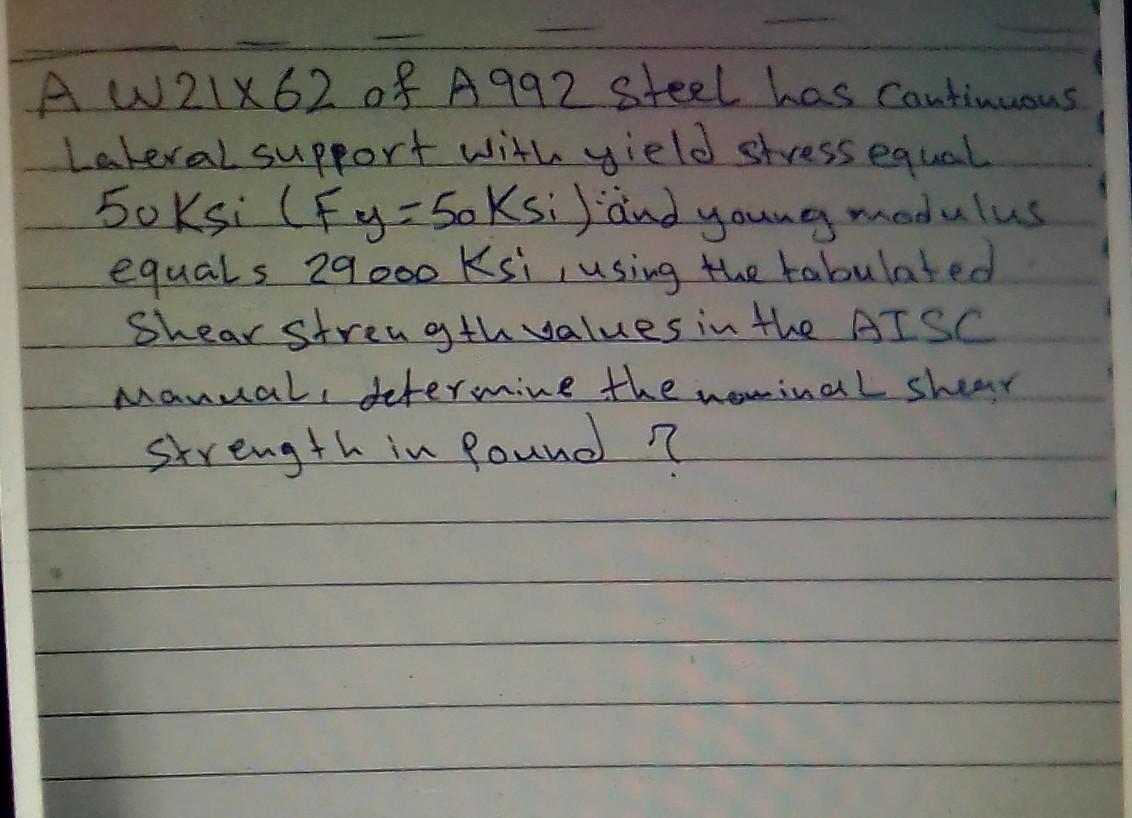 A W21X62 of A992 steel has Continuous
Lateral support with yield stress equal
50 Ksi (Fy=50Ksi) and young modulus
equals 29000 Ksi, using the tabulated
Shear strength values in the AISC
Manual, determine the nominal shear
strength in Pound ?